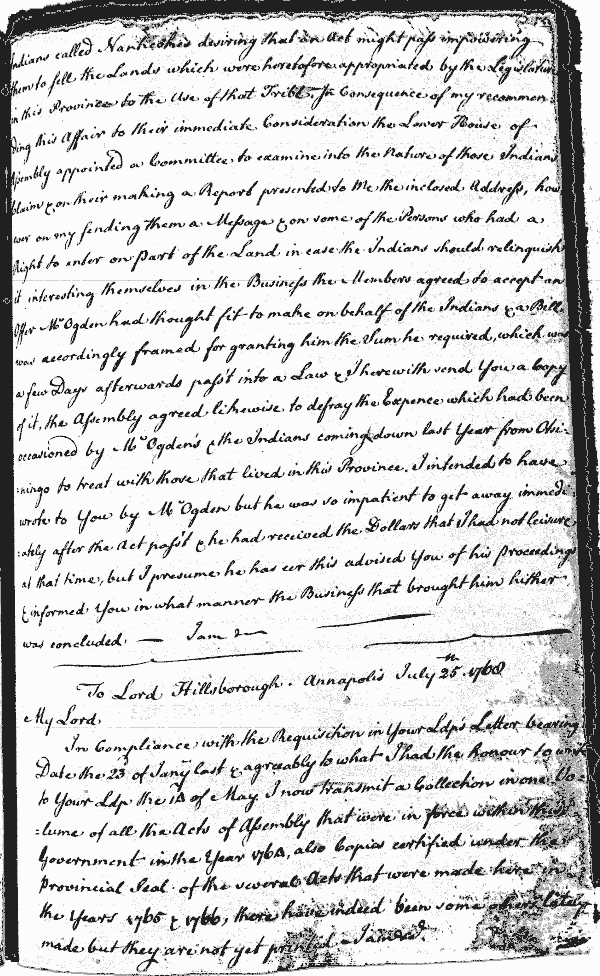 Indians called Nanticokes desiring that an Act might pass impowering
them to sell the Lands which were heretofore appropriated by the Legislature
in this Province to the Use of that Tribe. In Consequence of my recommen-
ding this Affair to their immediate Consideration the Lower House of
Assembly appointed a Committee to examine into the Nature of those Indians
Claim & on their making a Report presented to Me the inclosed Address, how
ever on my sending them a Message & on some of the Persons who had a
Right to enter on part of the Land in case the Indians should relinquish
it interesting themselves in the Business the Members agreed to accept an
Offer Mr Ogden had thought fit to make on behalf of the Indians & a Bill
was accordingly framed for granting him the Sum he required, which was
a few Days afterwards pass't into a Law & I herewith send You a Copy
of it, the Assembly agreed likewise to defray the Expence which had been
occasioned by Mr Ogden's & the Indians coming down last Year from Otsi-
:ningo to treat with those that lived in this Province. I intended to have
wrote to You by Mr Ogden but he was so impatient to get away immedi-
:ately after the Act pass't & he had received the Dollars that I had not leisure
at that time, but I presume he has eer this advised You of his Proceedings
& informed You in what manner the Business that brought him hither
was concluded — I am &
To Lord Hillsborough. Annapolis July 25th. 1768
My Lord,
In Compliance with the Requisition in Your Ldp's Letter bearing
Date the 23d of Janry last & agreeably to what I had the honour to write
to Your Ldp the 1st of May I now transmit a Collection in one Vo-
:lume of all the Acts of Assembly that were in force within this
Government in the Year 1764, also Copies certified under the
Provincial Seal of the several Acts that were made here in
the Years 1765 & 1766, there have indeed been some others lately
made but they are not yet printed — I am &c.